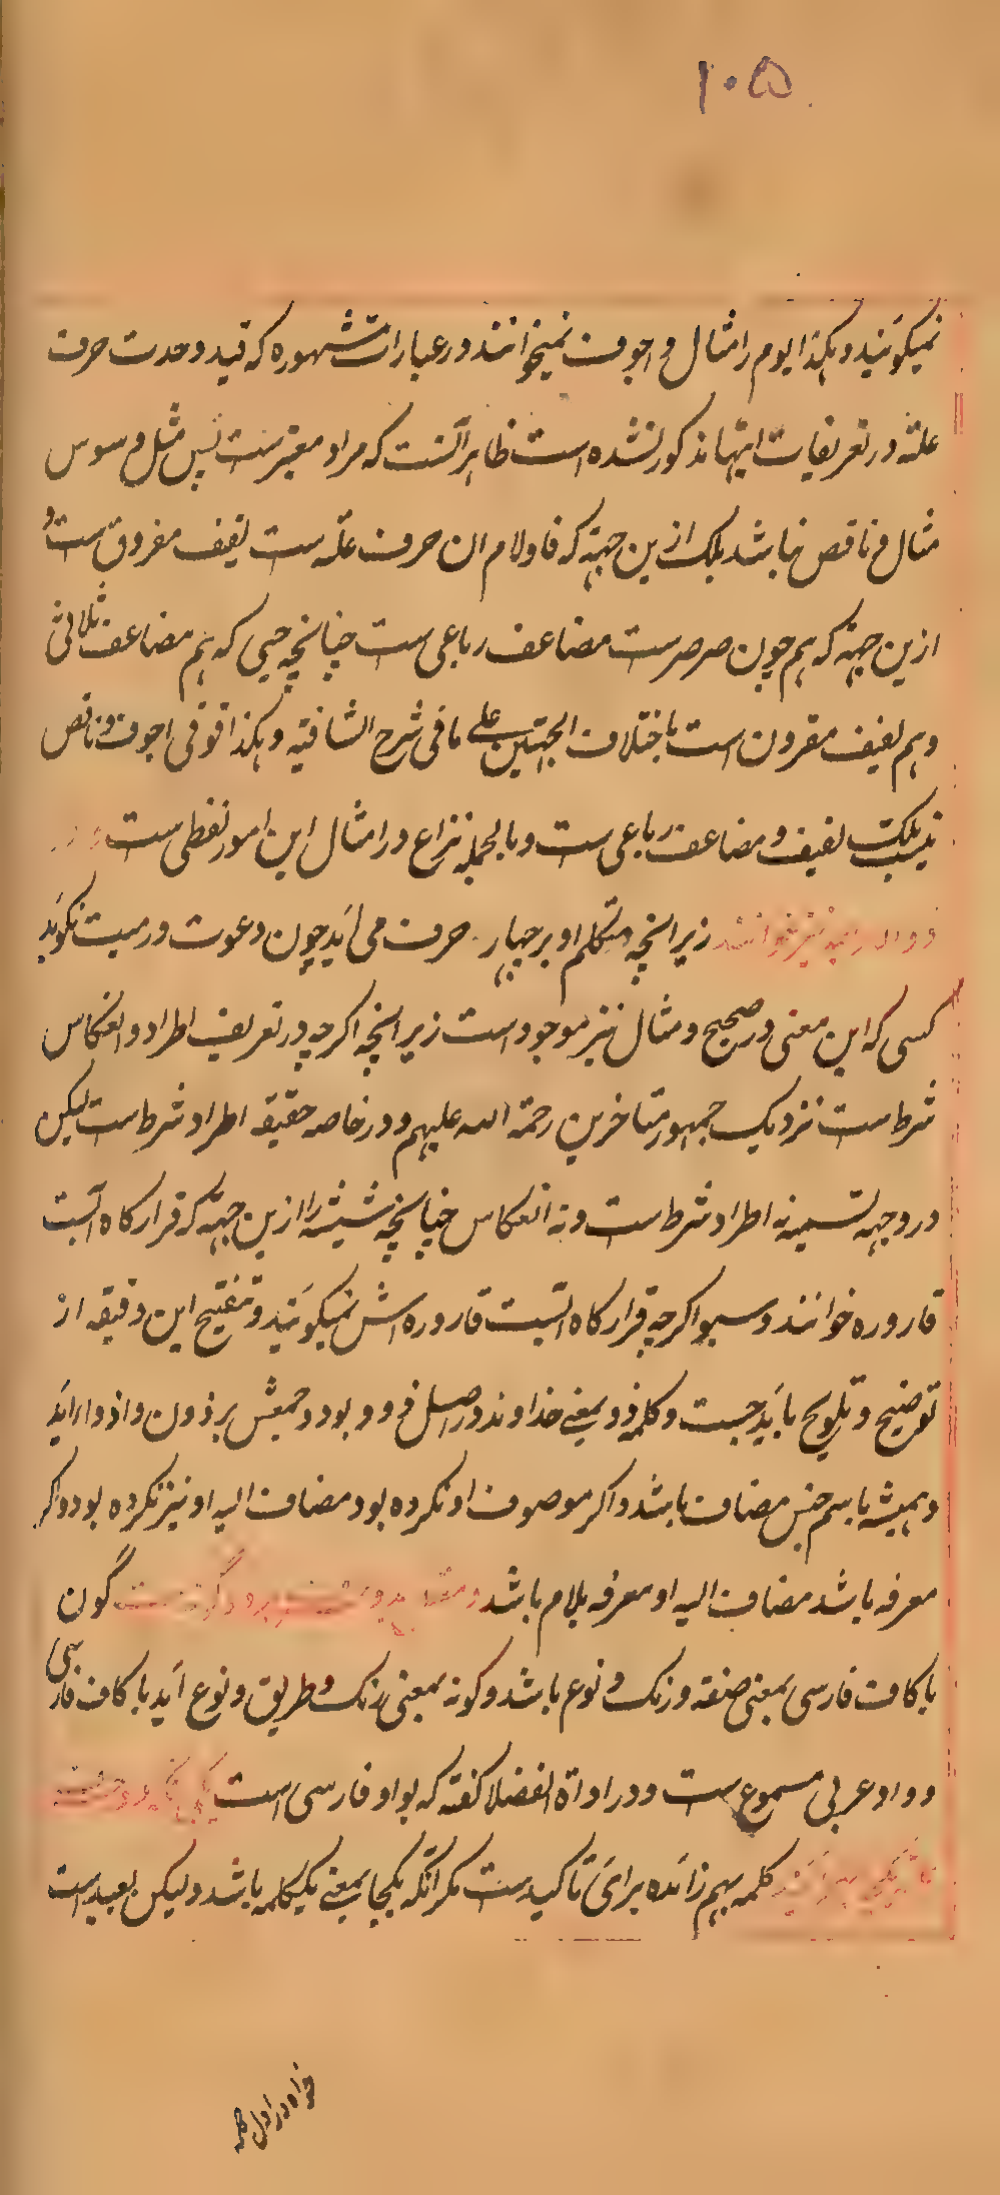 ۱۰۵
نمیکویند و هکذا یوم را مثال و اجوف نمیخوانند و در عبارات مشهوره که قید وحدت حرف
علته در تعریفات اینها مذکور نشده است ظاهر آنست که مراد معتبرست پس مثل وسوس
مثال و ناقص نباشد بلک ازین جهته که فا و لام ان حرف علّه ست لفیف مفروق است و
ازین جهته که هم چون صرصرست مضاعف رباعی ست چنانچه حیی که هم مضاعف ثلاثی
و هم لفیف مقرون است باختلاف الجهتین علی ما فی شرح الشافیه و هکذا قوقی اجوف و ناقص
نیست بلک لفیف و مضاعف رباعی ست و بالجمله نزاع در امثال این امور لفظی ست
زیرانچه متکلم او بر چهار حرف می آید چون دعوت و رمیت نکوید
کسی که این معنی در صحیح و مثال نیز موجود است زیرانچه اکرچه در تعریف اطراد و انعکاس
شرط است نزدیک جمهور متاخرین رحمة الله علیهم و در خاصه حقیقه اطراد شرط است لیکن
در وجهه تسمیه نه اطراد شرط ست و نه انعکاس چنانچه شیشه را ازین جهته که قرارکاه آبست
قاروره خوانند و سبو اکرچه قرارکاه آبست قاروره اش نمیکویند و تنقیح این دقیقه از
توضیح و تلویح باید جست و کلمه ذو بمعنی خداوند در اصل ذوو بود و جمعش بر ذوون و اذواء آید
و همیشه باسم جنس مضاف باشد و اکر موصوف او نکره بود مضاف الیه او نیز نکره بود و اکر
معرفه باشد مضاف الیه او معرفه بلام باشد گون
با کاف فارسی بمعنی صفته و رنک و نوع باشد و کونه بمعنی رنک و طریق و نوع آید با کاف فارسی
و واو عربی مسموع ست و در اداة الفضلا کفته که بواو فارسی است
کلمه بهم زائده برای تاکیدست مکر آنکه یکجا بمعنی یک کلمه باشد و لیکن بعید است